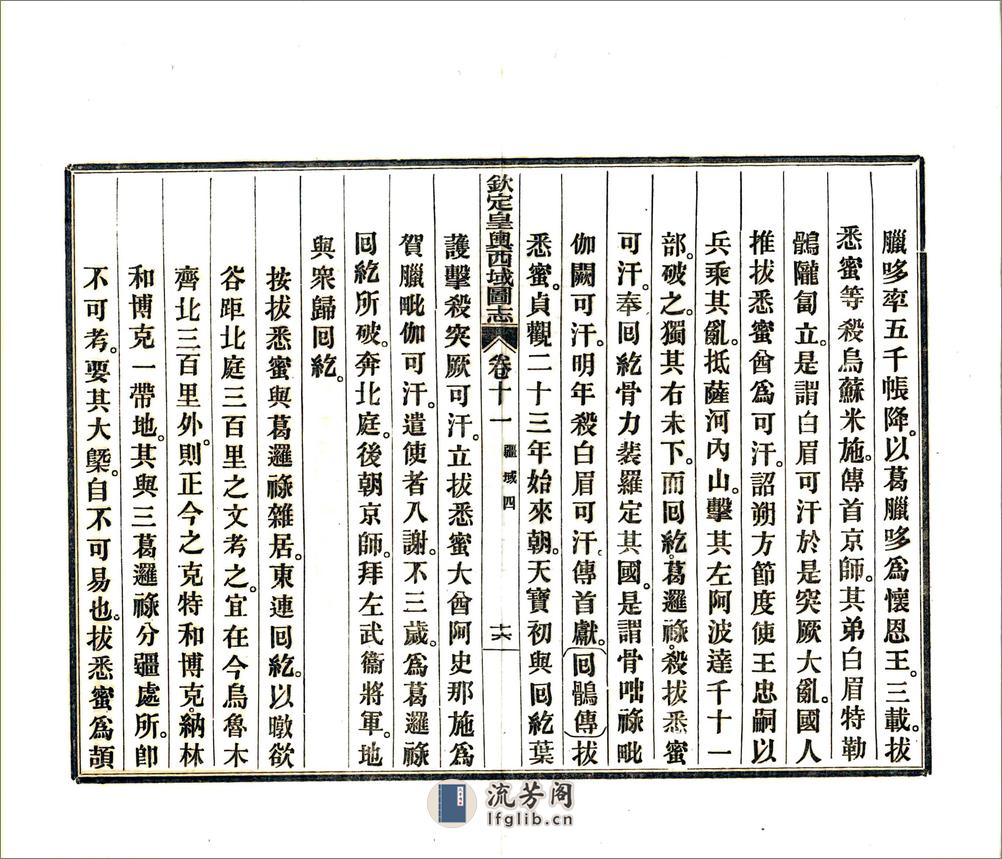 臘哆率五千帳降。以葛臘哆為懷恩王。三載。拔
悉蜜等殺烏蘇米施。傳首京師。其弟白眉特勒
鶻隴匐立。是謂白眉可汗於是突厥大亂。國人
推拔悉蜜酋為可汗。詔朔方節度使王忠嗣以
兵乘其亂。抵薩河內山。擊其左阿波達千十一
部。破之。獨其右未下。而回紇葛邏祿殺拔悉蜜
可汗。奉回紇骨力裴羅定其國。是謂骨咄祿毗
伽闕可汗。明年殺白眉可汗。傳首獻。回鶻傳拔
悉蜜。貞觀二十三年始來朝。天寶初與回紇葉
欽定皇輿西域圖志 卷十一 疆域四 十六
護擊殺突厥可汗。立拔悉蜜大酋阿史那施為
賀臘毗伽可汗。遣使者入謝。不三歲。為葛邏祿
回紇所破。奔北庭。後朝京師。拜左武衞將軍。地
與衆歸回紇。
按拔悉蜜與葛邏祿雜居。東連回紇。以暾欲
谷距北庭三百里之文考之。宜在今烏魯木
齊北三百里外。則正今之克特和博克。納林
和博克一帶地。其與三葛邏祿分疆處所。卽
不可考。要其大槩。自不可易也。拔悉蜜為頡
流芳阁
lfglib.cn